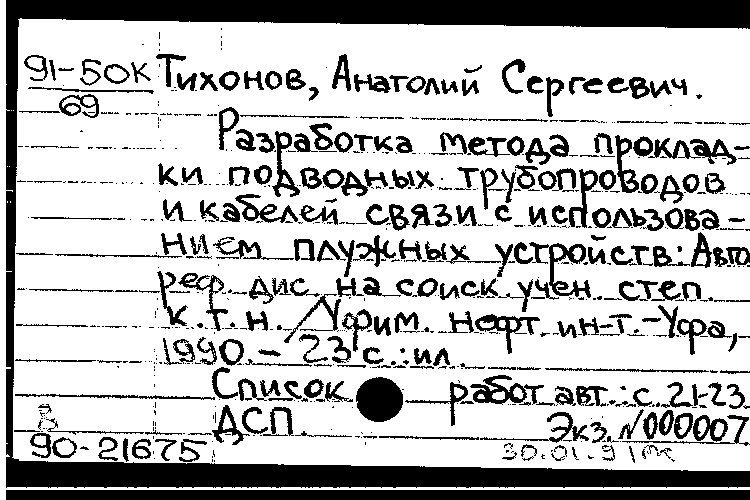 91-50К Тихонов, Анатолий Сергеевич.
69
Разработка метода проклад-
ки подводных трубопроводов
и кабелей связи с использова-
нием плужных устройств: Авто
реф. дис. на соиск. учен. степ.
к.т.н. / Уфим. нефт. ин-т. - Уфа,
1990. - 23 с.: ил.
Список работ авт.: с. 21-23
ДСП. Экз. N 000007
В
90-21675 30.01.91